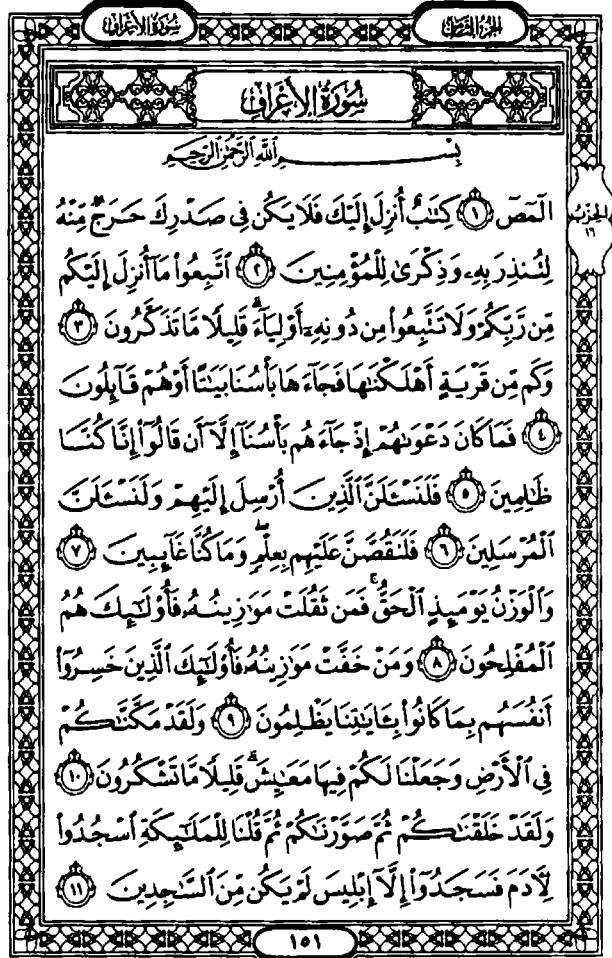 سُورَةُ الأَعْرَافِ
الجُزْءُ الثَّامِنُ
سُورَةُ الأَعْرَافِ
بِسْمِ ٱللَّهِ ٱلرَّحْمَٰنِ ٱلرَّحِيمِ
الٓمٓصٓ ١ كِتَٰبٌ أُنزِلَ إِلَيْكَ فَلَا يَكُن فِى صَدْرِكَ حَرَجٌ مِّنْهُ
الحِزْبُ ١٦
لِتُنذِرَ بِهِۦ وَذِكْرَىٰ لِلْمُؤْمِنِينَ ٢ ٱتَّبِعُوا۟ مَآ أُنزِلَ إِلَيْكُم
مِّن رَّبِّكُمْ وَلَا تَتَّبِعُوا۟ مِن دُونِهِۦٓ أَوْلِيَآءَ ۗ قَلِيلًا مَّا تَذَكَّرُونَ ٣
وَكَم مِّن قَرْيَةٍ أَهْلَكْنَٰهَا فَجَآءَهَا بَأْسُنَا بَيَٰتًا أَوْ هُمْ قَآئِلُونَ
٤ فَمَا كَانَ دَعْوَىٰهُمْ إِذْ جَآءَهُم بَأْسُنَآ إِلَّآ أَن قَالُوٓا۟ إِنَّا كُنَّا
ظَٰلِمِينَ ٥ فَلَنَسْـَٔلَنَّ ٱلَّذِينَ أُرْسِلَ إِلَيْهِمْ وَلَنَسْـَٔلَنَّ
ٱلْمُرْسَلِينَ ٦ فَلَنَقُصَّنَّ عَلَيْهِم بِعِلْمٍ ۖ وَمَا كُنَّا غَآئِبِينَ ٧
وَٱلْوَزْنُ يَوْمَئِذٍ ٱلْحَقُّ ۚ فَمَن ثَقُلَتْ مَوَٰزِينُهُۥ فَأُو۟لَٰٓئِكَ هُمُ
ٱلْمُفْلِحُونَ ٨ وَمَنْ خَفَّتْ مَوَٰزِينُهُۥ فَأُو۟لَٰٓئِكَ ٱلَّذِينَ خَسِرُوٓا۟
أَنفُسَهُم بِمَا كَانُوا۟ بِـَٔايَٰتِنَا يَظْلِمُونَ ٩ وَلَقَدْ مَكَّنَّٰكُمْ
فِى ٱلْأَرْضِ وَجَعَلْنَا لَكُمْ فِيهَا مَعَٰيِشَ ۗ قَلِيلًا مَّا تَشْكُرُونَ ١٠
وَلَقَدْ خَلَقْنَٰكُمْ ثُمَّ صَوَّرْنَٰكُمْ ثُمَّ قُلْنَا لِلْمَلَٰٓئِكَةِ ٱسْجُدُوا۟
لِـَٔادَمَ فَسَجَدُوٓا۟ إِلَّآ إِبْلِيسَ لَمْ يَكُن مِّنَ ٱلسَّٰجِدِينَ ١١
١٥١